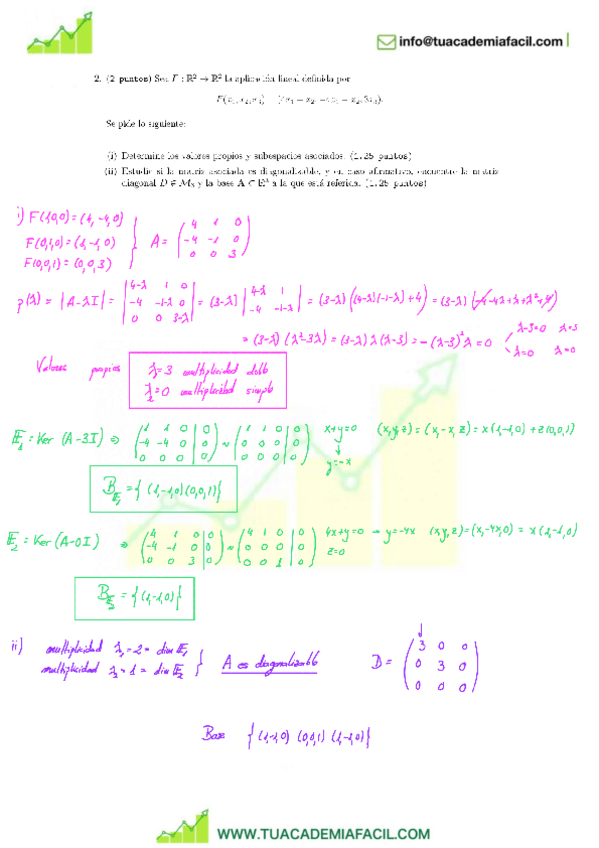 info@tuacademiafacil.com
2. (2 puntos) Sea F : ℝ² → ℝ² la aplicación lineal definida por
Se pide lo siguiente:
(i) Determine los valores propios y subespacios asociados. (1.25 puntos)
(ii) Estudie si la matriz asociada es diagonalizable, y en caso afirmativo, encuentre la matriz
diagonal D ∈ M₃ y la base A ⊂ ℝ³ a la que está referida. (1.25 puntos)
i) F(1,0,0) = (4,-4,0)
F(0,1,0) = (1,-1,0)
F(0,0,1) = (0,0,3)
A = (4 1 0
-4 -1 0
0 0 3)
p(λ) = |A-λI| = |4-λ 1 0; -4 -1-λ 0; 0 0 3-λ| = (3-λ) |4-λ 1; -4 -1-λ| = (3-λ)((4-λ)(-1-λ)+4) = (3-λ)(-4-4λ+λ+λ²+4)
= (3-λ)(λ²-3λ) = (3-λ)λ(λ-3) = -(λ-3)²λ = 0
λ-3=0 λ=3
λ=0 λ=0
Valores propios
λ₁=3 multiplicidad doble
λ₂=0 multiplicidad simple
E₁ = Ker(A-3I) ⇒ (1 1 0 | 0; -4 -4 0 | 0; 0 0 0 | 0) ≈ (1 1 0 | 0; 0 0 0 | 0; 0 0 0 | 0) x+y=0 ↓ y=-x (x,y,z) = (x,-x,z) = x(1,-1,0) + z(0,0,1)
B_E₁ = {(1,-1,0)(0,0,1)}
E₂ = Ker(A-0I) ⇒ (4 1 0 | 0; -4 -1 0 | 0; 0 0 3 | 0) ≈ (4 1 0 | 0; 0 0 0 | 0; 0 0 1 | 0) 4x+y=0 → y=-4x z=0 (x,y,z)=(x,-4x,0) = x(1,-1,0)
B_E₂ = {(1,-1,0)}
ii) multiplicidad λ₁ = 2 = dim E₁
multiplicidad λ₂ = 1 = dim E₂
A es diagonalizable
D = (3 0 0
0 3 0
0 0 0)
Base {(1,-1,0) (0,0,1) (1,-1,0)}
WWW.TUACADEMIAFACIL.COM